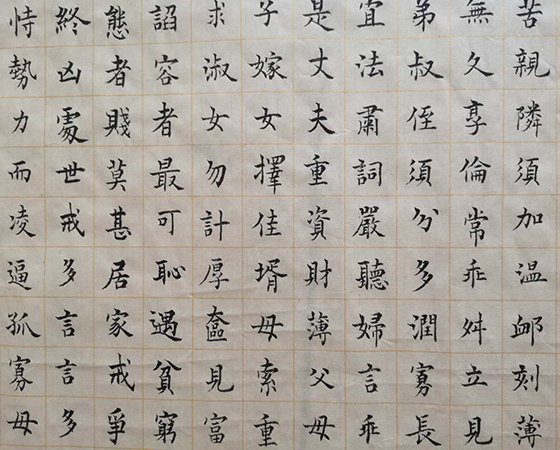 苦親隣須加温卹刻薄
無久享倫常乖舛立見
弟叔侄須分多潤寡長
宜法肅詞嚴聽婦言乖
是丈夫重資財薄父母
子嫁女擇佳壻毋索重
求淑女勿計厚奩見富
諂容者最可恥遇貧窮
態者賤莫甚居家戒爭
終凶處世戒多言言多
恃勢力而凌逼孤寡毋